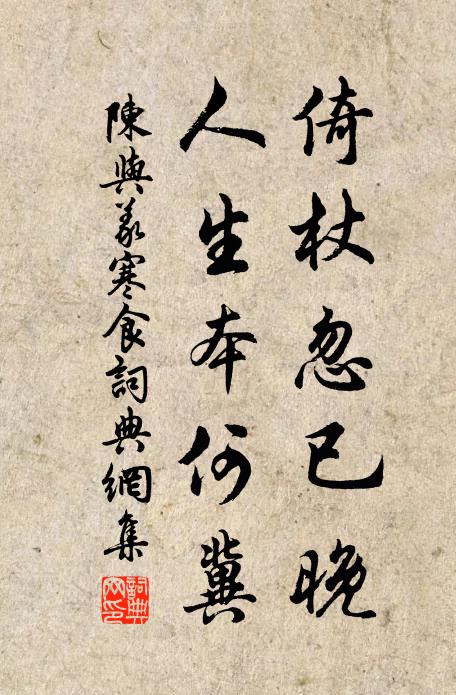 倚杖忽已晚
人生本何冀
陳與義寒食詞典網集
詞典网印